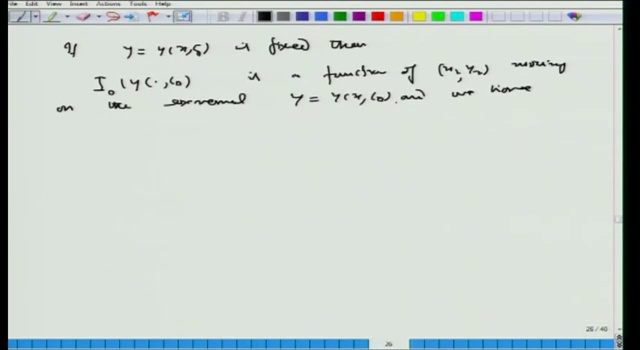 File Edit View Insert Actions Tools Help
If y = y(x, c₀) is fixed then
I₀(y(·, c₀) is a function of (x₂, y₂) moving
on the extremal y = y(x, c₀). and we have
26 / 40
26